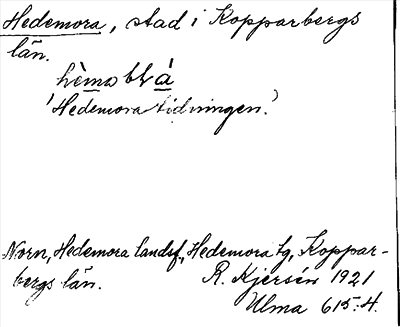 Hedemora, stad i Kopparbergs
län.
hèmɒblá
'Hedemora tidningen'
Norn, Hedemora landsf., Hedemora tg, Koppar-
bergs län. R. Kjersén 1921
Ulma 615:4.